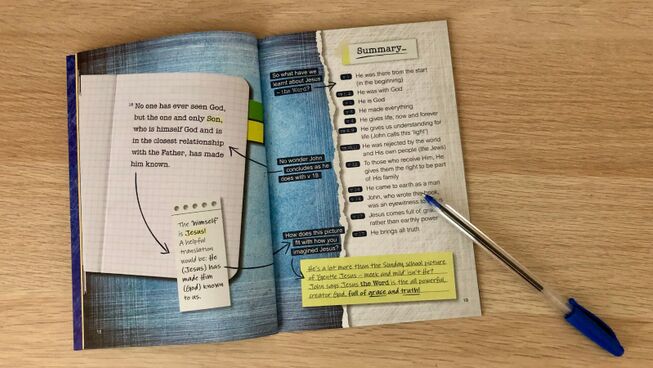 18 No one has ever seen God,
but the one and only Son,
who is himself God and is
in the closest relationship
with the Father, has made
him known.
The 'himself'
is Jesus!
A helpful
translation
would be: He
(Jesus) has
made Him
(God) known
to us.
So what have we
learnt about Jesus
– the Word?
No wonder John
concludes as he
does with v 18
How does this picture
fit with how you
imagined Jesus?
Summary...
He was there from the start
(in the beginning)
He was with God
He is God
He made everything
He gives life, now and forever
He gives us understanding for
life (John calls this "light")
He was rejected by the world
and His own people (the Jews)
To those who receive Him, He
gives them the right to be part
of His family
He came to earth as a man
John, who wrote this book,
was an eyewitness to
Jesus comes full of
rather than earthly power
He brings all truth
He's a lot more than the Sunday school picture
of Gentle Jesus – meek and mild isn't He?
John says Jesus the Word is the all powerful,
creator God, full of grace and truth!